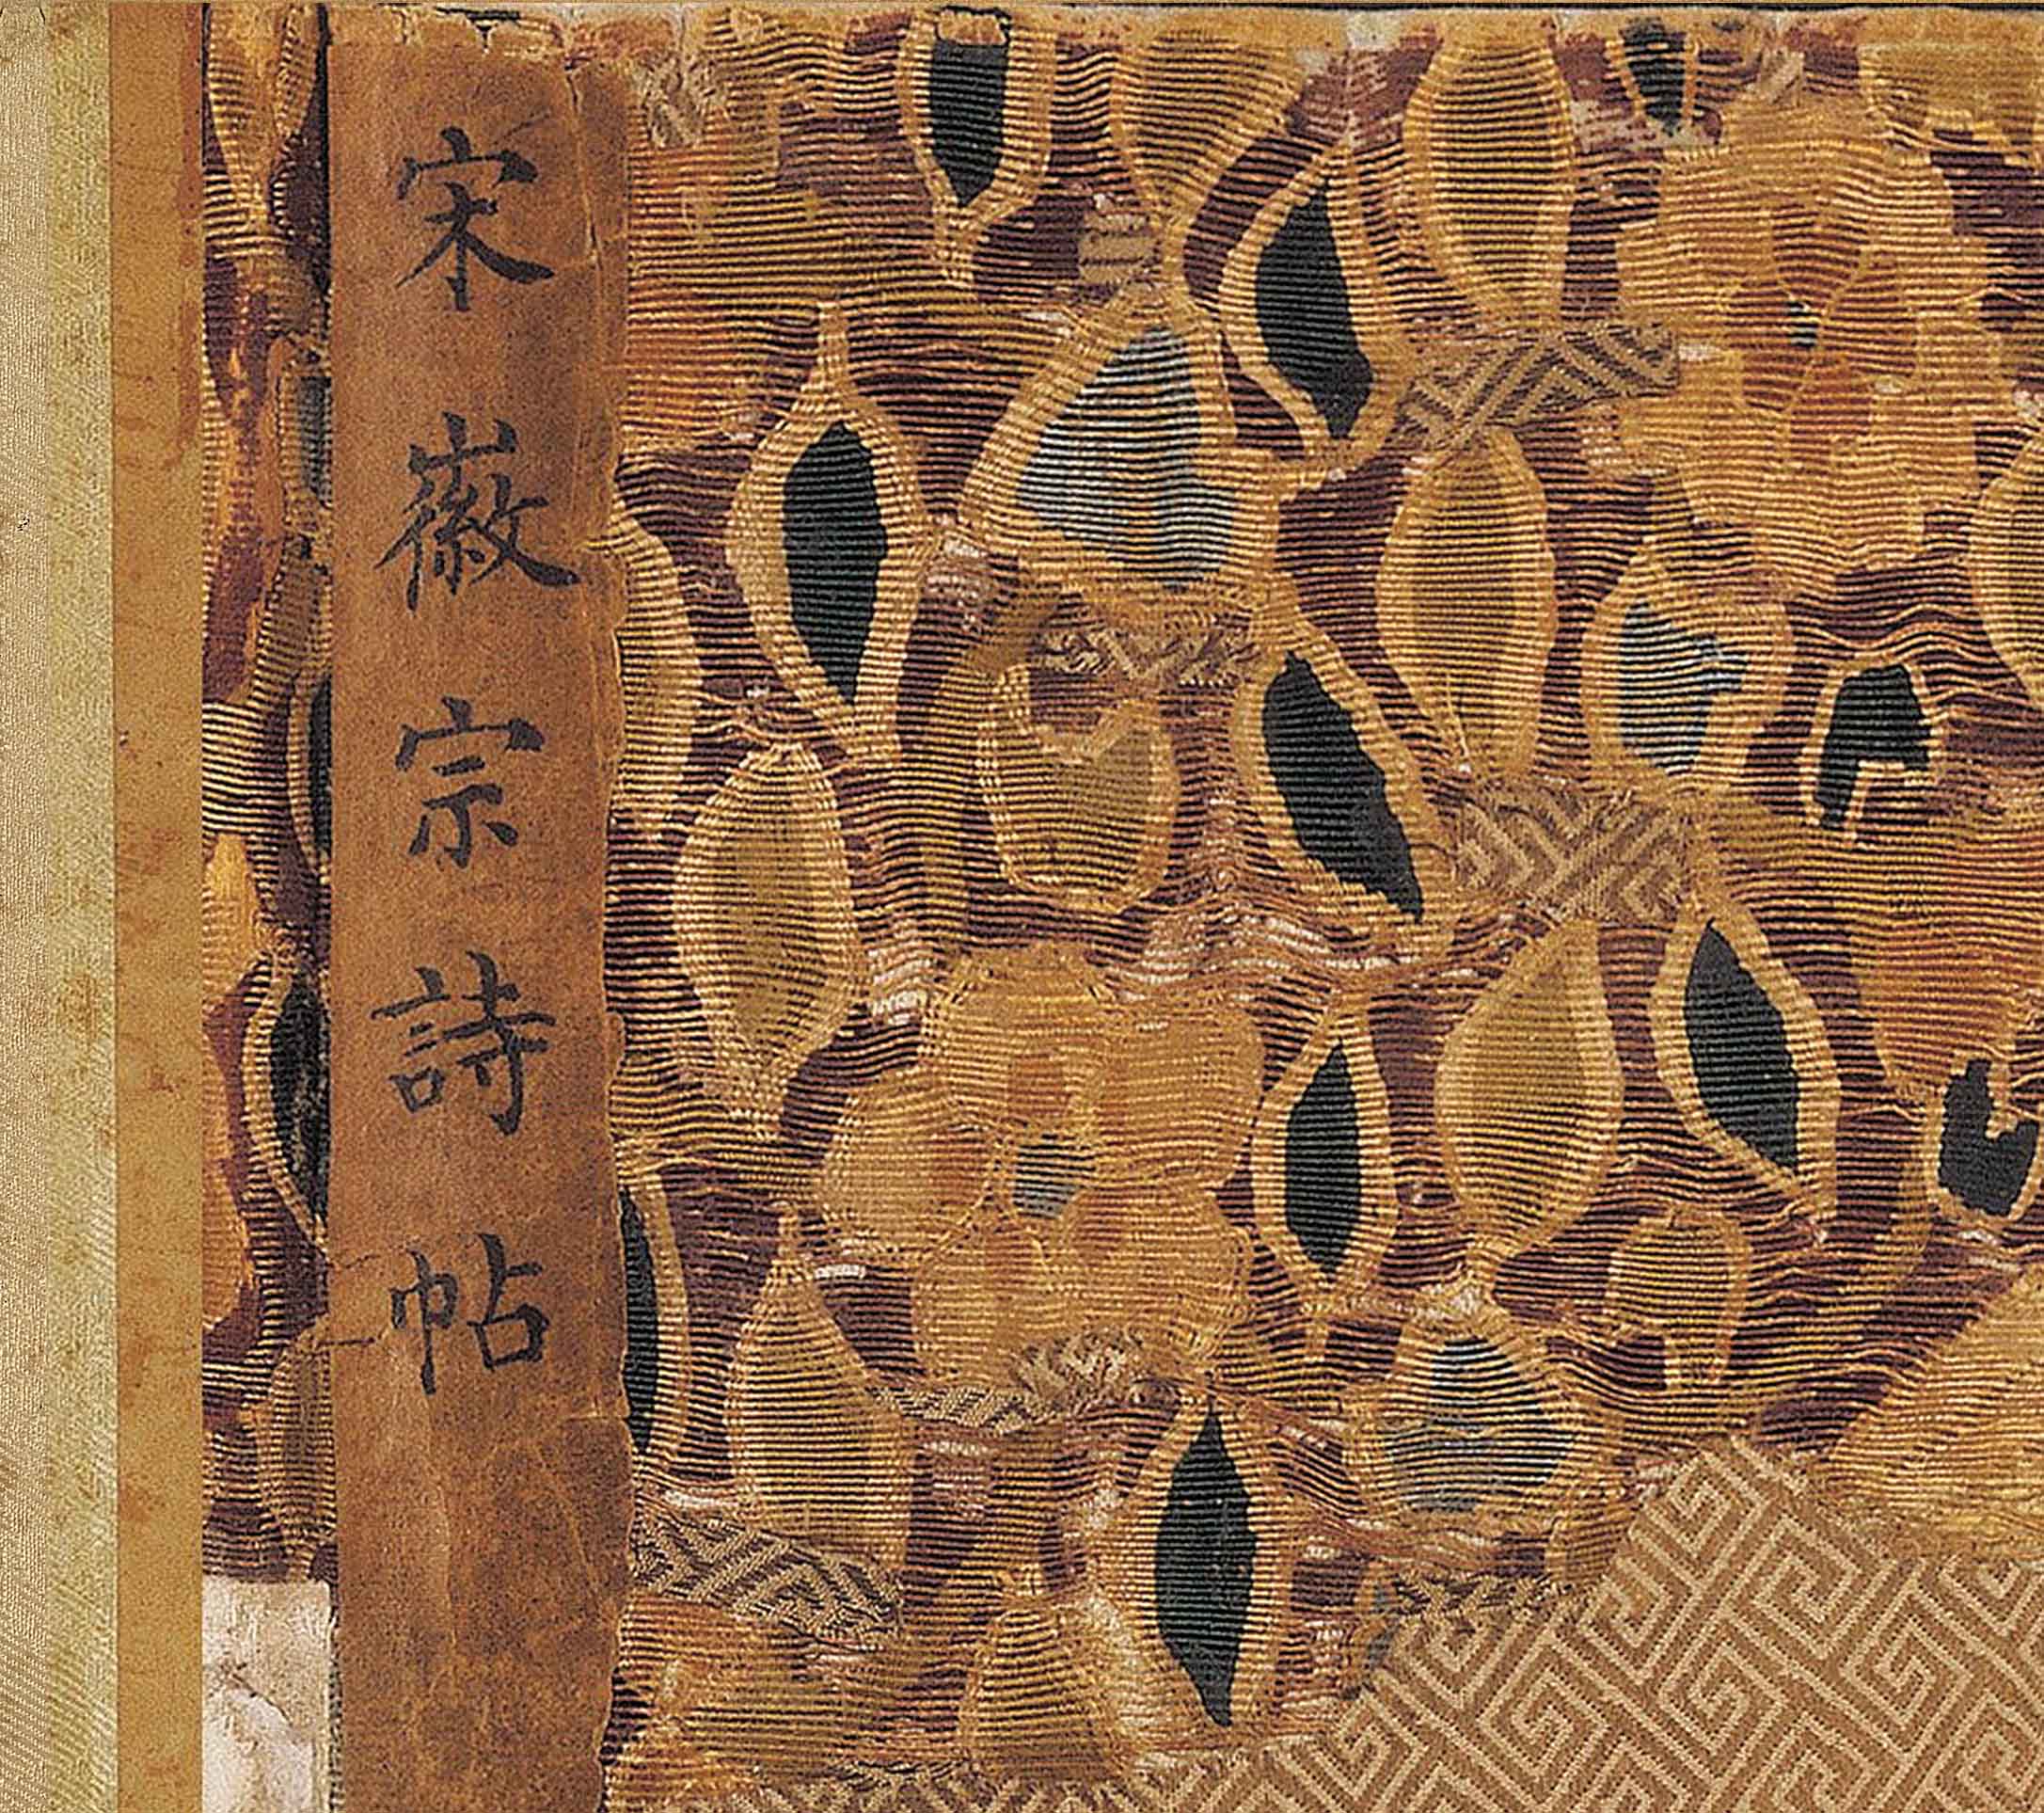 宋徽宗詩帖